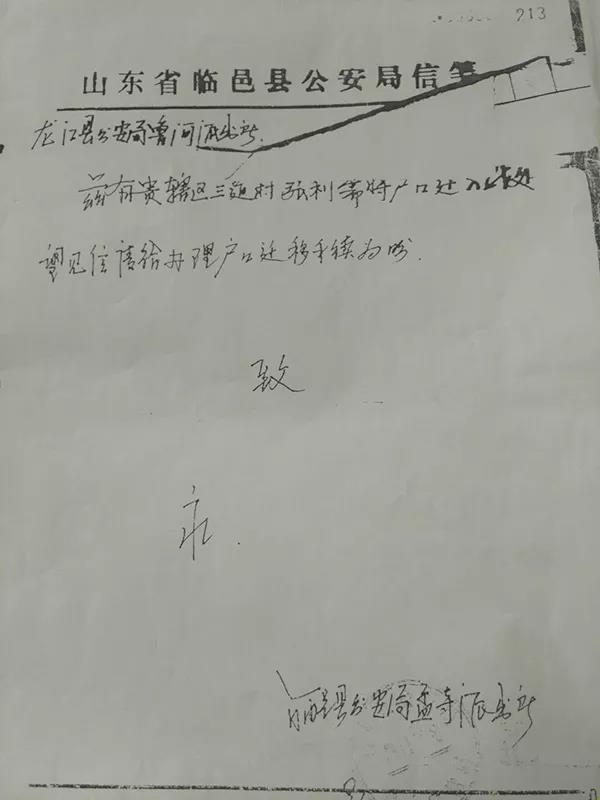 213
山东省临邑县公安局信笺
龙江县公安局鲁河派出所
兹有贵辖区三 村张利等将户口迁入我处
望见信请给办理户口迁移手续为盼.
致
礼.
临邑县公安局孟寺派出所